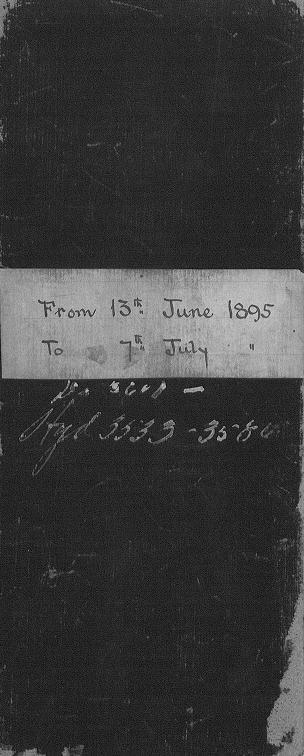 From 13th June 1895
To 7th July "
Hyd 3533 - 358